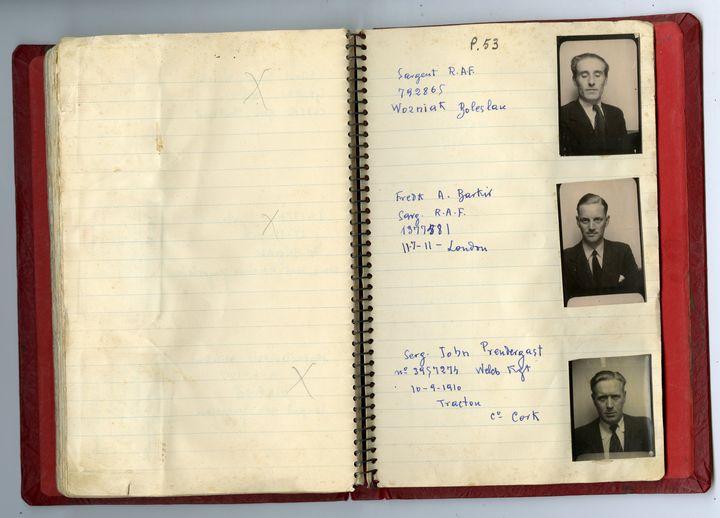 P.53
Sargent R.A.F.
792865
Wozniak Boleslau
Fredk A. Barkir
Sarg. R.A.F.
1377581
11-7-11 - London
Serg. John Prendergast
nº 3957274 Welch Fgt
10-9-1910
Tracton
Cº Cork